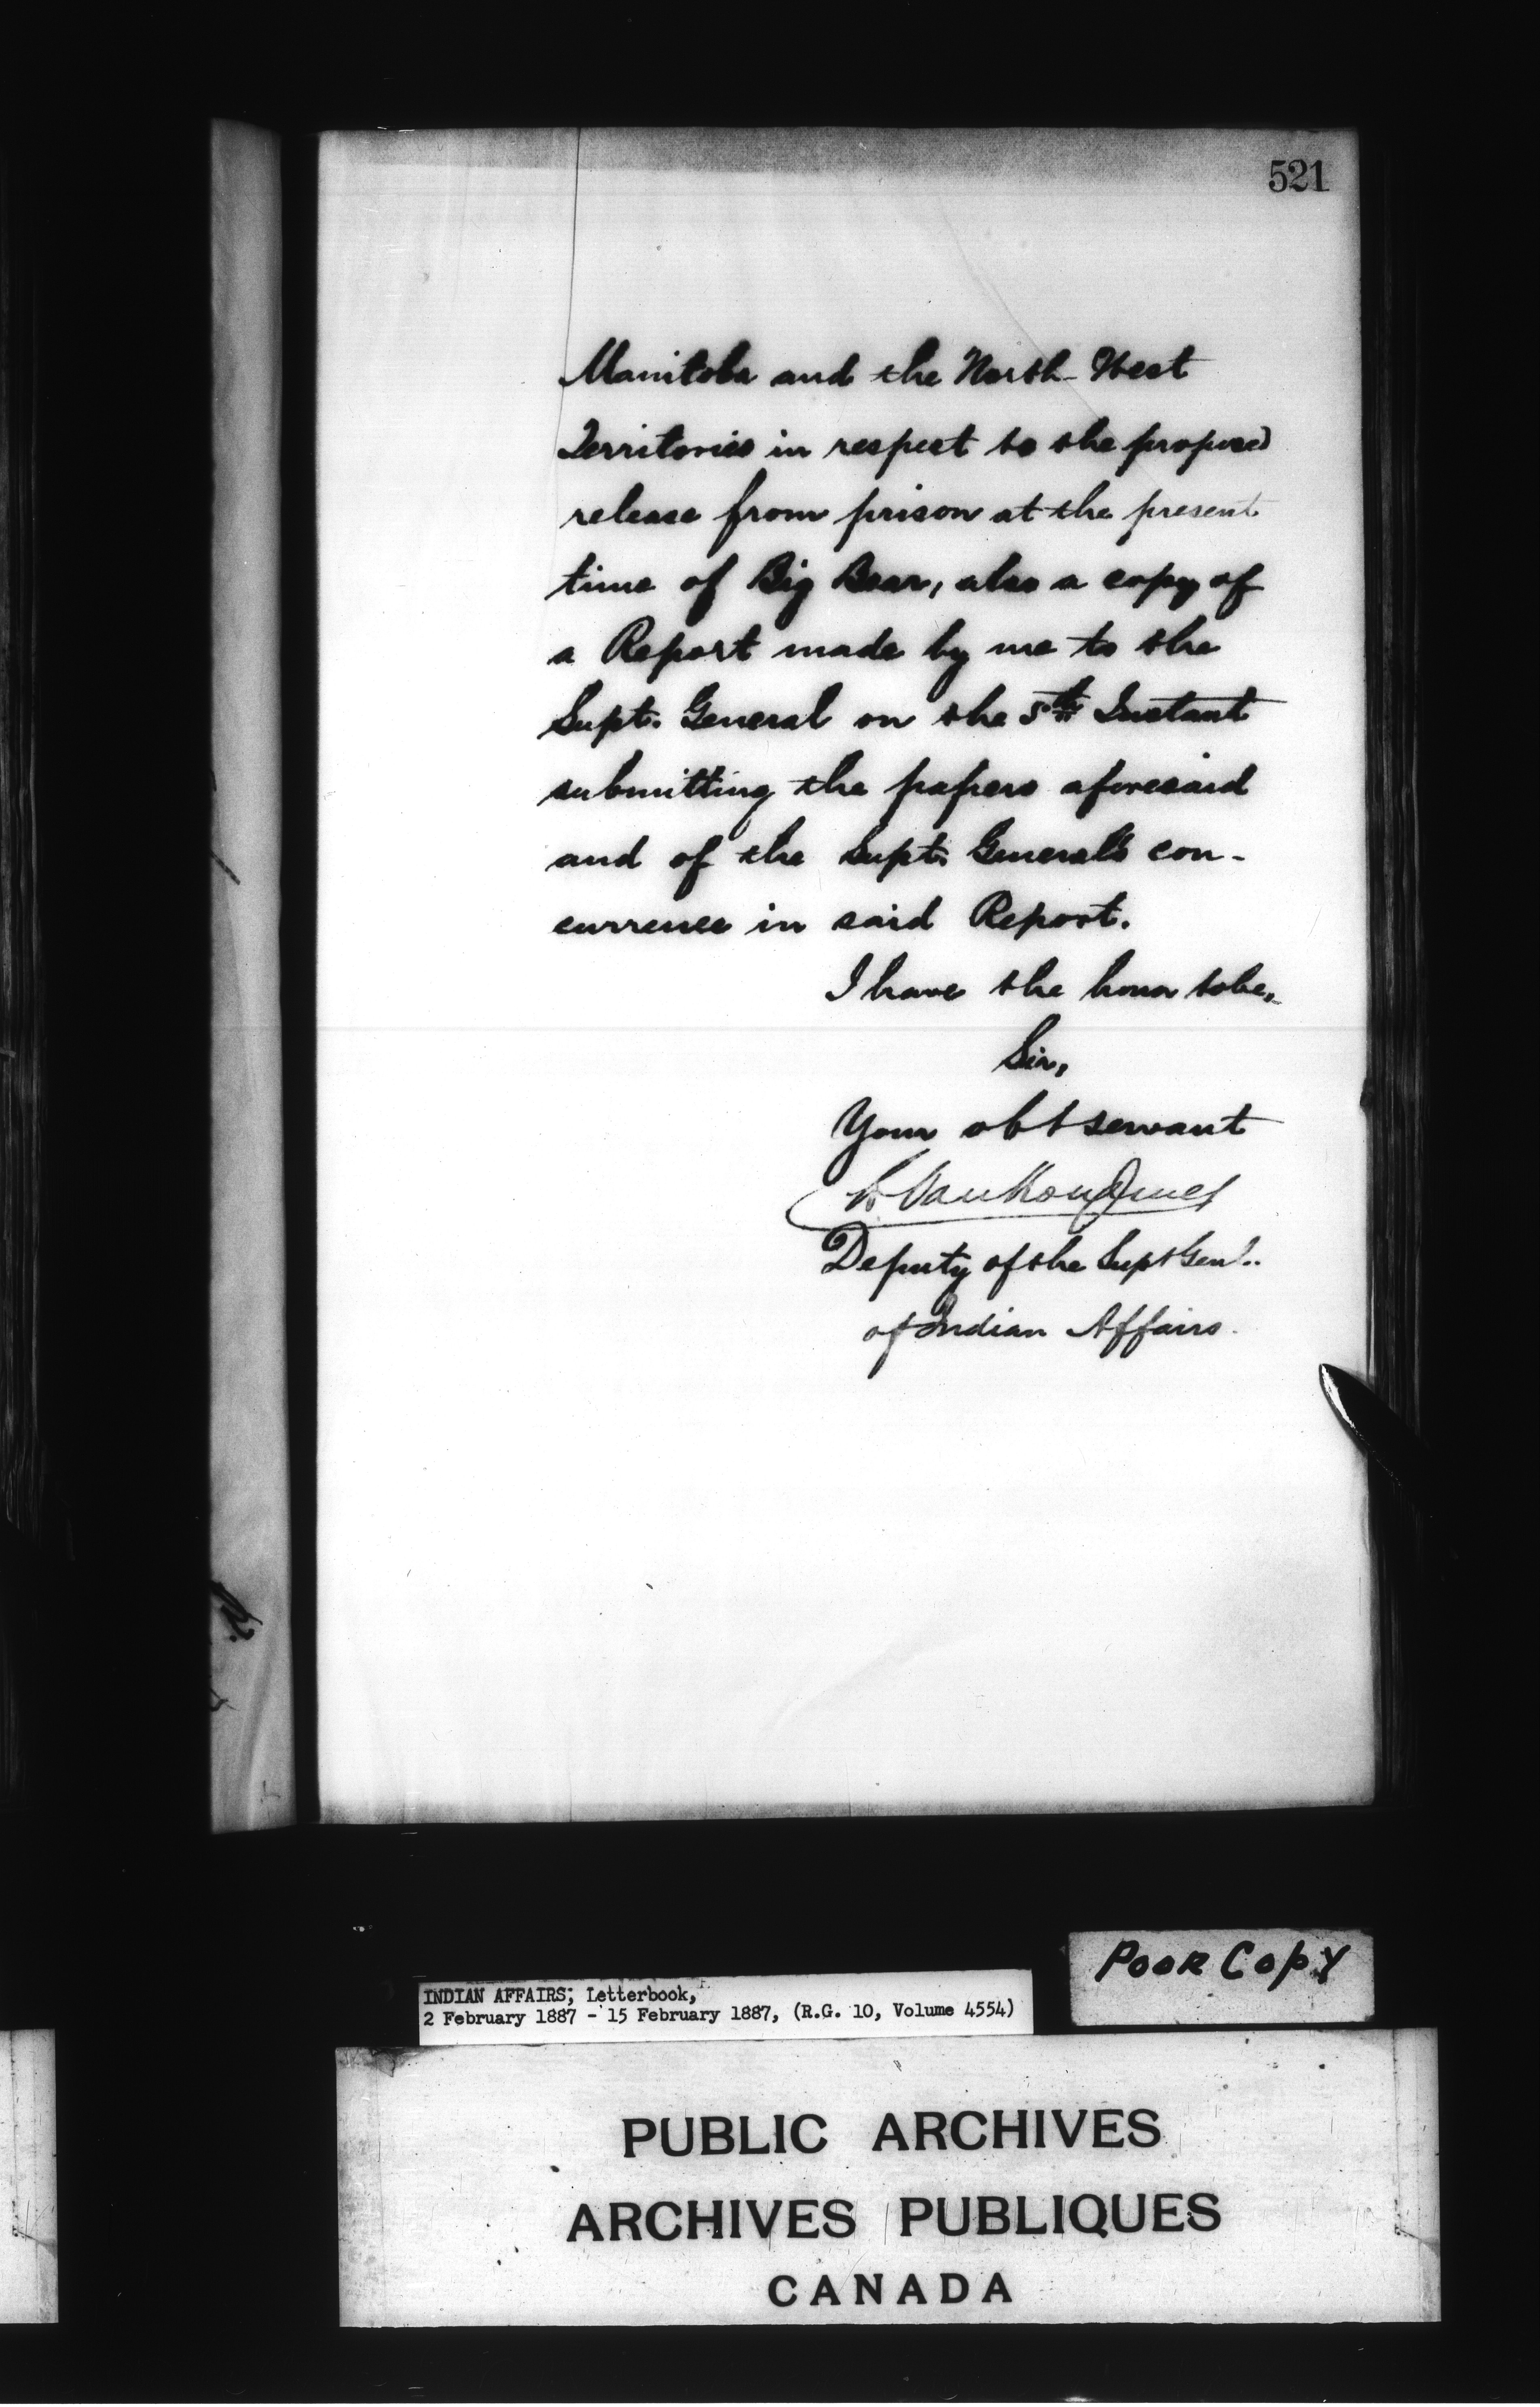 521
Manitoba and the North-West
Territories in respect to the proposed
release from prison at the present
time of Big Bear, also a copy of
a Report made by me to the
Supt. General on the 5th Instant
submitting the papers aforesaid
and of the Supt. General's con-
currence in said Report.
I have the honor to be,
Sir,
Your obt servant
L. VanKoughnet
Deputy of the Supt Genl.
of Indian Affairs.
POOR COPY
INDIAN AFFAIRS; Letterbook,
2 February 1887 - 15 February 1887, (R.G. 10, Volume 4554)
PUBLIC ARCHIVES
ARCHIVES PUBLIQUES
CANADA